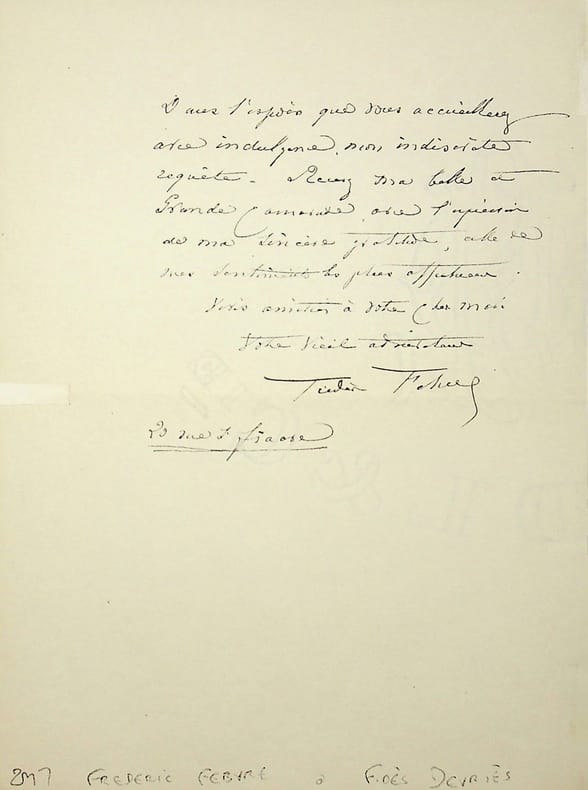 Dans l'espoir que vous accueillerez
avec indulgence, mon indiscrète
requête - Recevez ma belle et
Grande Camarade, avec l'expression
de ma sincère gratitude, celle de
mes sentiments les plus affectueux.
amitiés à votre cher mari
Votre vieil admirateur
Febvre
20 rue
2M7 FREDERIC FEBVRE à FIDÈS DEVRIÈS